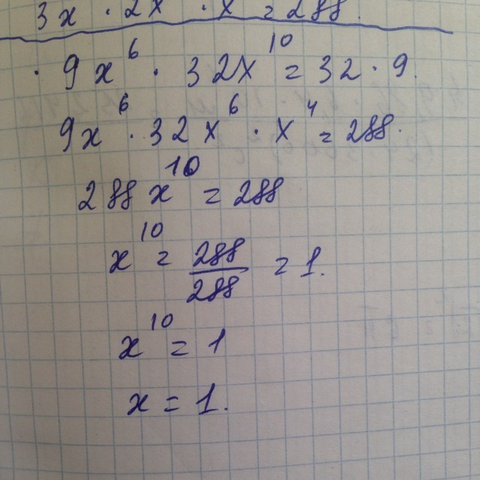 3x · 2x · x = 288.
· 9x⁶ · 32x¹⁰ = 32 · 9.
9x⁶ · 32x⁶ · x⁴ = 288.
288x¹⁰ = 288
x¹⁰ = 288/288 = 1.
x¹⁰ = 1
x = 1.